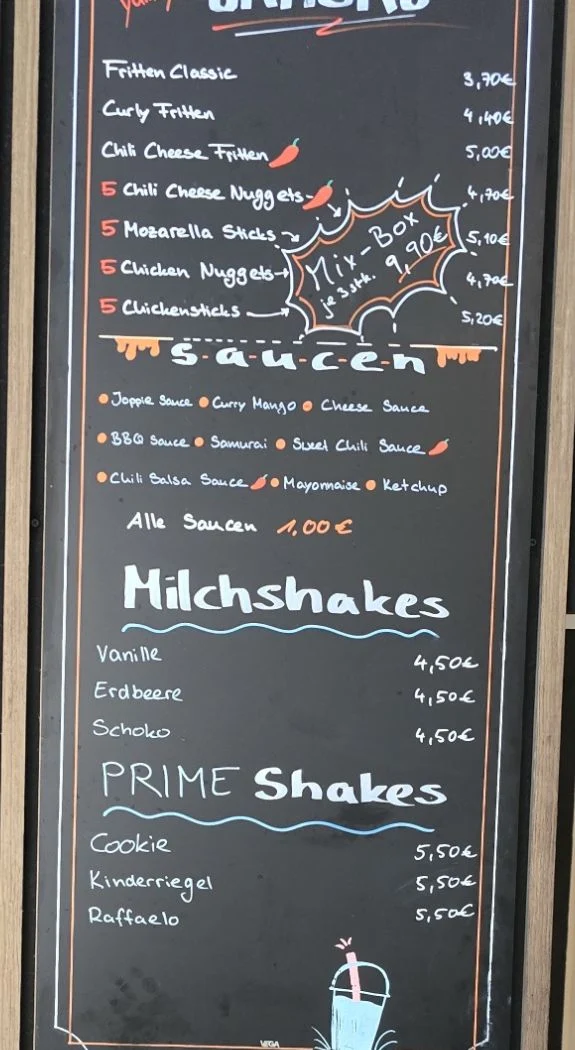 Fritten Classic 3,70€
Curly Fritten 4,40€
Chili Cheese Fritten 5,00€
5 Chili Cheese Nuggets 4,70€
5 Mozarella Sticks 5,10€
5 Chicken Nuggets 4,70€
5 Chickensticks 5,20€
Mix-Box
je 3 stk. 9,90€
s-a-u-c-e-n
• Joppie Sauce • Curry Mango • Cheese Sauce
• BBQ Sauce • Samurai • Sweet Chili Sauce
• Chili Salsa Sauce • Mayonnaise • Ketchup
Alle Saucen 1,00€
Milchshakes
Vanille 4,50€
Erdbeere 4,50€
Schoko 4,50€
PRIME Shakes
Cookie 5,50€
Kinderriegel 5,50€
Raffaelo 5,50€
VEGA